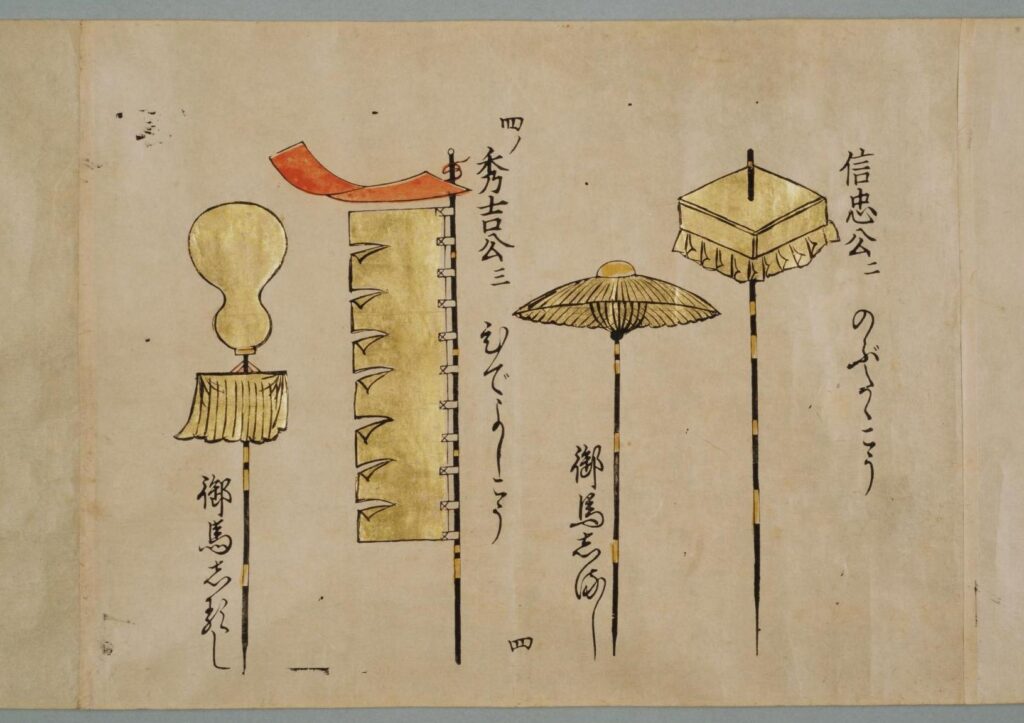 信忠公二 のぶたゝこう
御馬志るし
四ノ
秀吉公三 ひでよしこう
四
御馬志るし